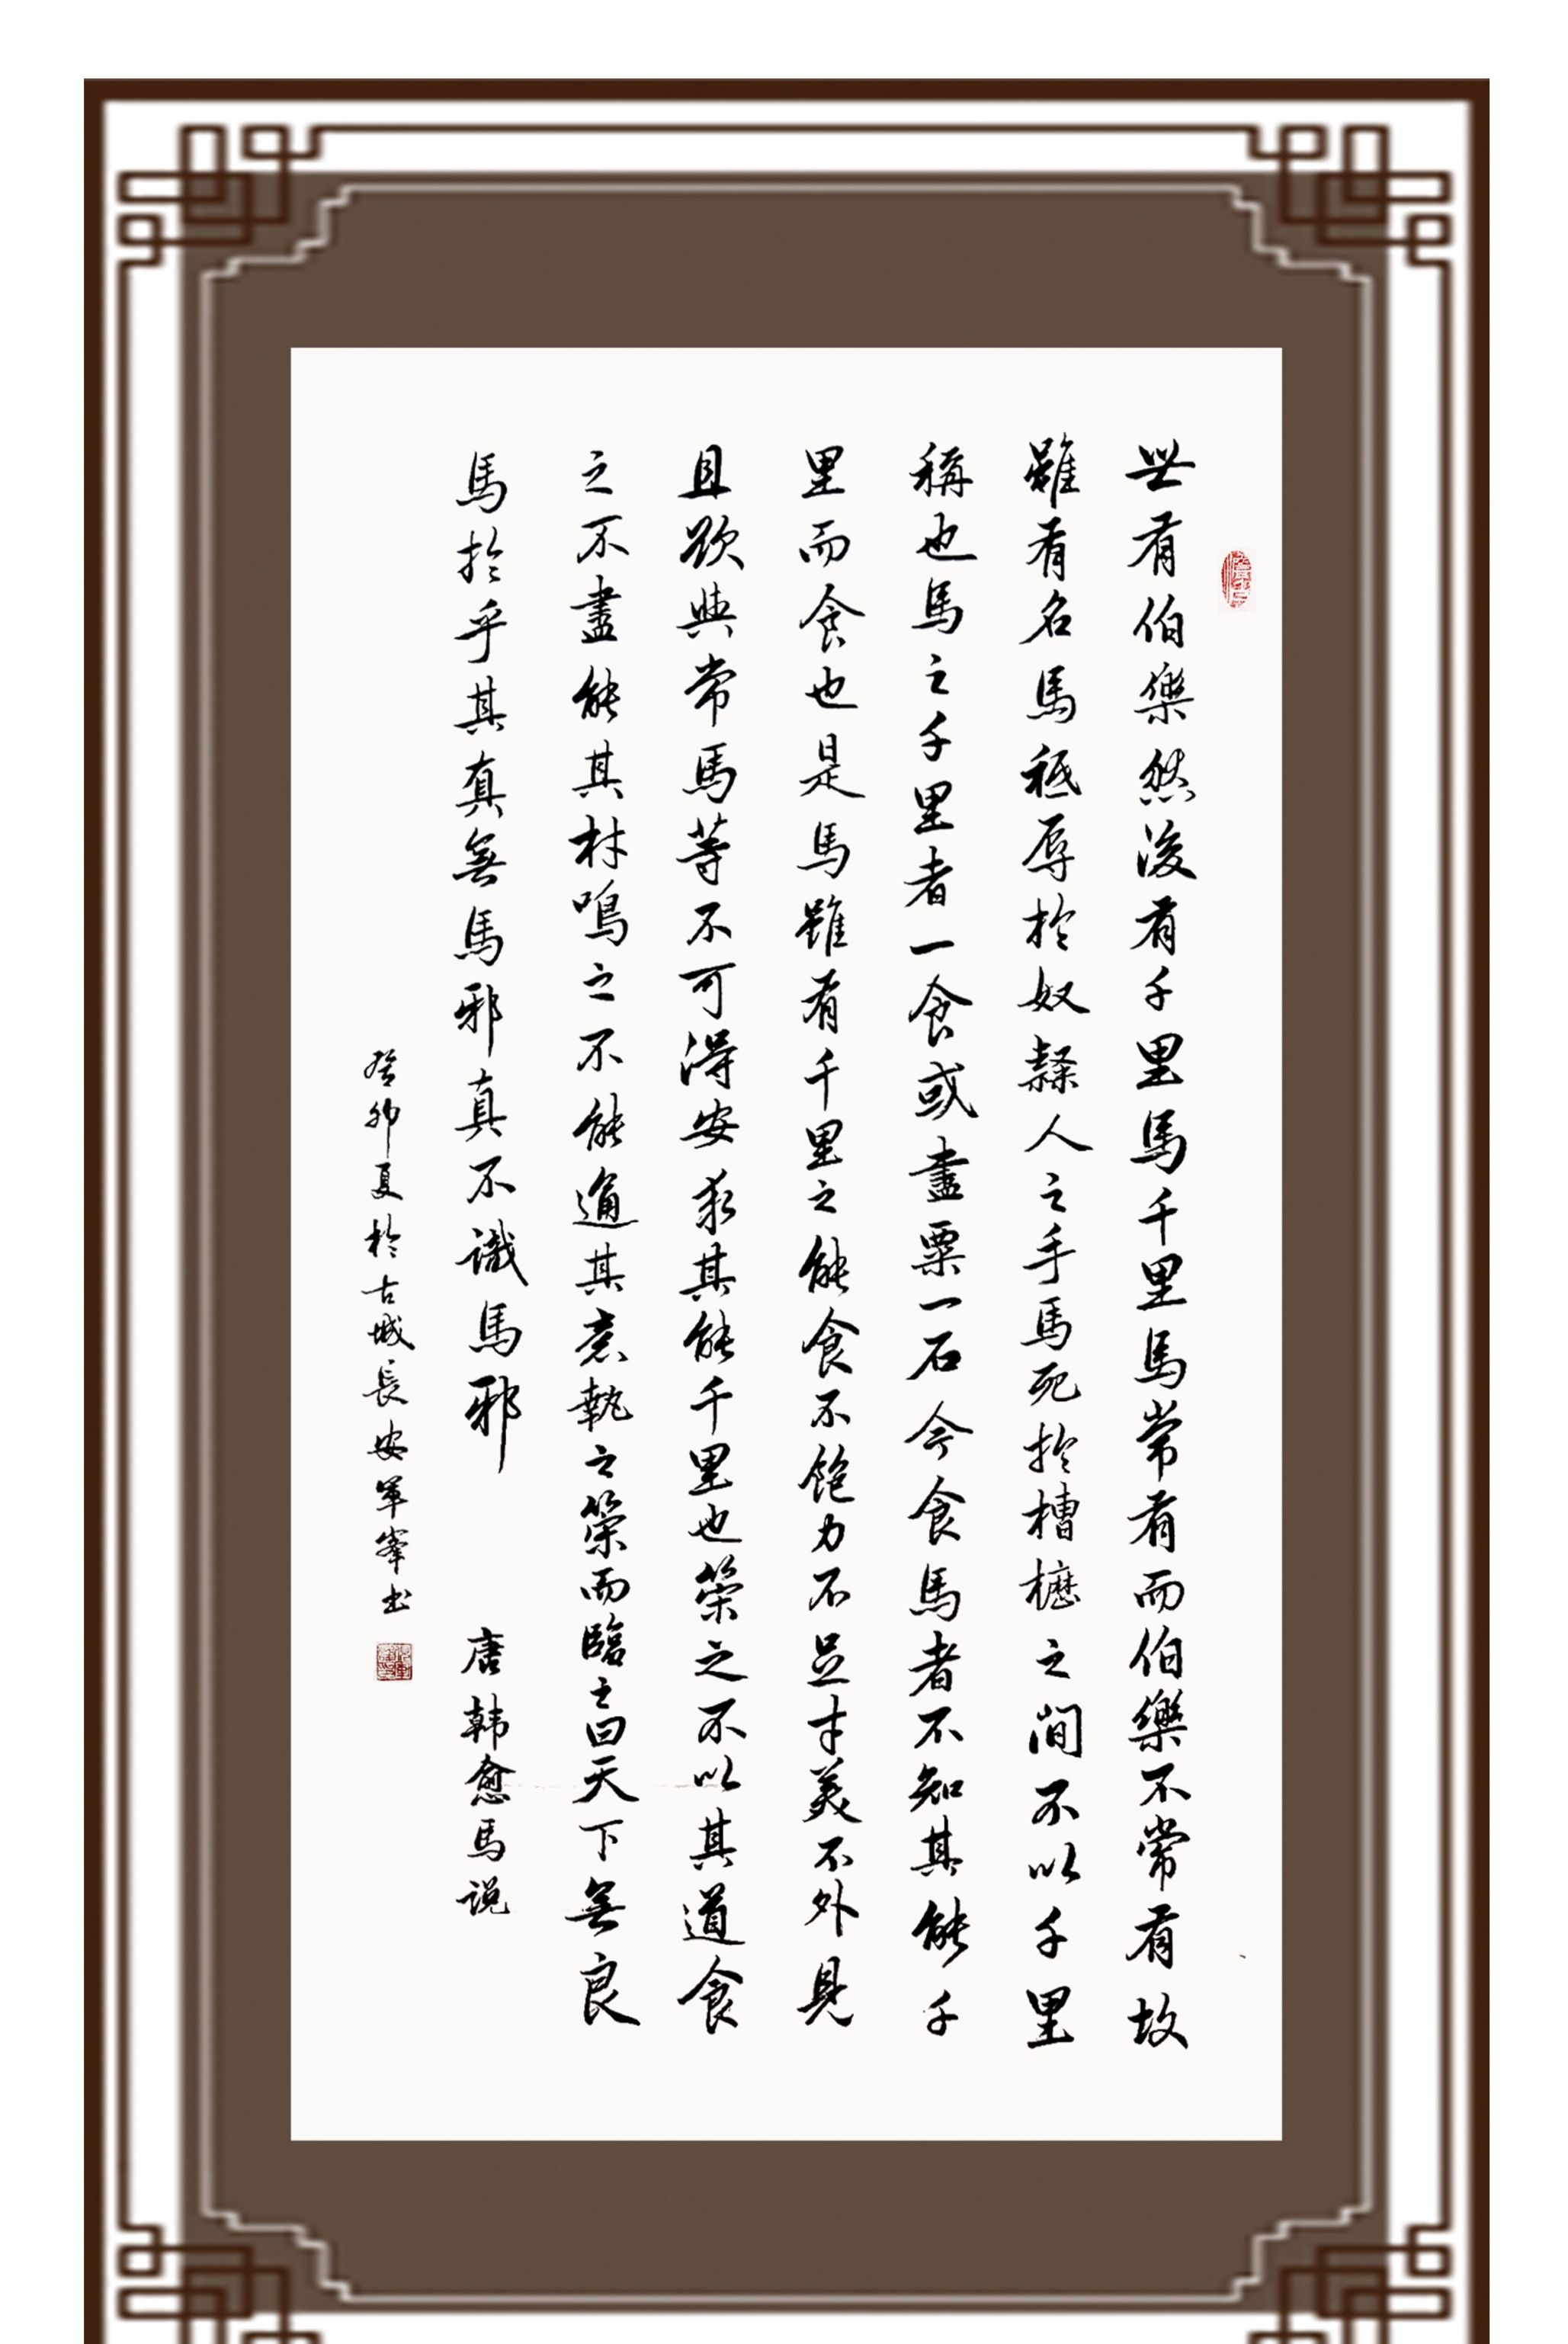 世有伯樂然後有千里馬千里馬常有而伯樂不常有故
雖有名馬祗辱於奴隸人之手馬死於槽櫪之間不以千里
稱也馬之千里者一食或盡粟一石今食馬者不知其能千
里而食也是馬雖有千里之能食不飽力不足才美不外見
且欲與常馬等不可得安求其能千里也策之不以其道食
之不盡能其材鳴之不能通其意執之策而臨之曰天下無良
馬於乎其真無馬邪真不識馬邪 唐韩愈馬说
癸卯夏於古城長安軍峯书